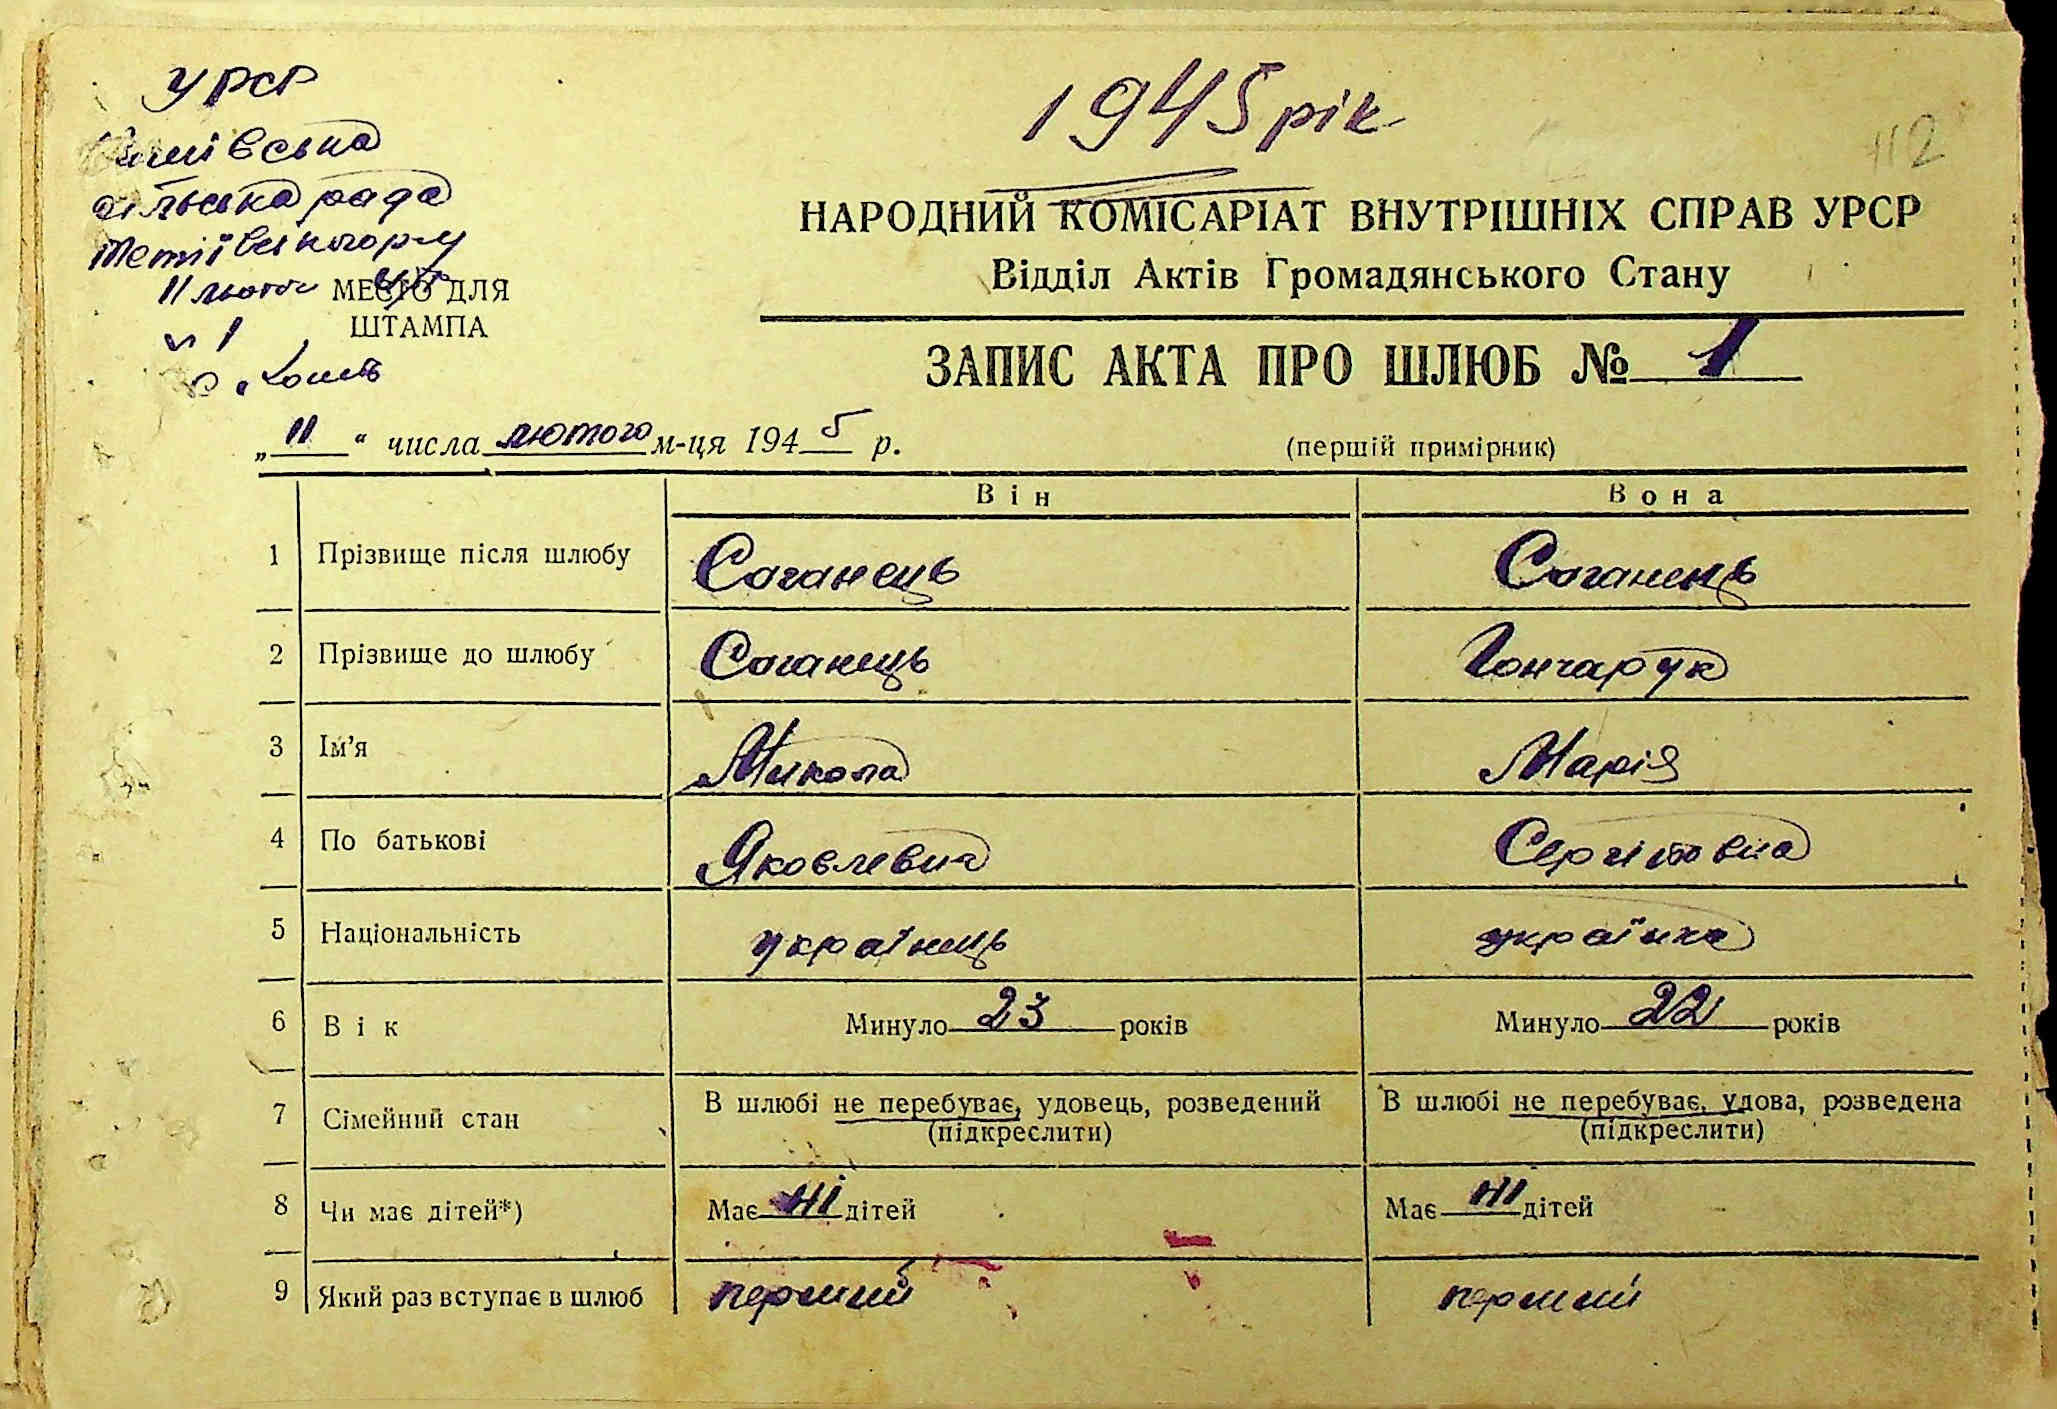 УРСР
1945 рік
112
сільська рада
Тетіївського р-ну
11 лютого
МЕСТО ДЛЯ
ШТАМПА
№ 1
НАРОДНИЙ КОМІСАРІАТ ВНУТРІШНІХ СПРАВ УРСР
Відділ Актів Громадянського Стану
ЗАПИС АКТА ПРО ШЛЮБ № 1
„11“ числа лютого м-ця 1945 р.
(перший примірник)
Він Вона
1 Прізвище після шлюбу Саганець Саганець
2 Прізвище до шлюбу Саганець Гончарук
3 Ім’я Микола Марія
4 По батькові Яковлевна Сергітовна
5 Національність українець українка
6 Вік Минуло 23 років Минуло 22 років
7 Сімейний стан В шлюбі не перебуває, удовець, розведений В шлюбі не перебуває, удова, розведена
(підкреслити) (підкреслити)
8 Чи має дітей*) Має ні дітей Має ні дітей
9 Який раз вступає в шлюб перший перший